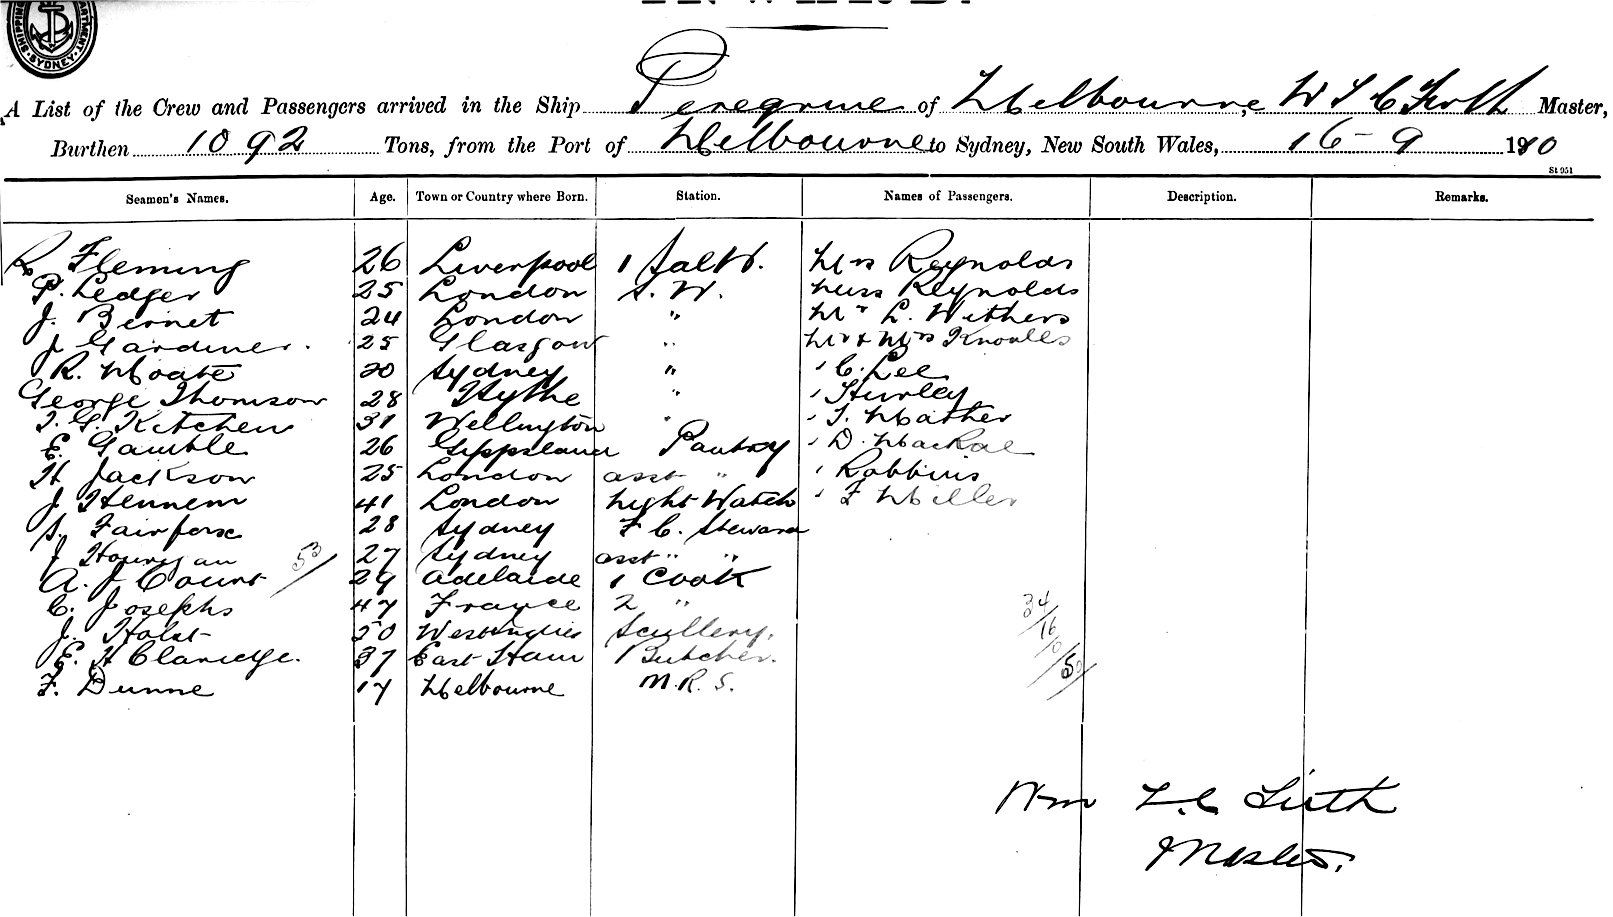 SHIPPING DEPARTMENT. SYDNEY
INWARD.
A List of the Crew and Passengers arrived in the Ship Peregrine of Melbourne, W L C Firth Master,
Burthen 1092 Tons, from the Port of Melbourne to Sydney, New South Wales, 16-9 1910
St 951
Seamen's Names. Age. Town or Country where Born. Station. Names of Passengers. Description. Remarks.
R. Fleming 26 Liverpool 1 Sal W. Mrs Reynolds
P. Ledger 25 London S. W. Miss Reynolds
J. Bernet 24 London " Mr L. Withers
J Gardiner. 25 Glasgow " Mr & Mrs Knowles
R. Moate 20 Sydney " " C. Lee
George Thomson 28 Hythe " " Hurley
T. G. Kitchen 31 Wellington " " T. Mather
E. Gamble 26 Gippsland Pantry " D. MacRae
H Jackson 25 London asst " " Robbins
J Hennem 41 London Night Watch " F Miller
S. Fairfax 28 Sydney F C. Steward
J Hourigan 27 Sydney asst " "
53
A. J Count 29 Adelaide 1 Cook
C. Josephs 47 France 2 "
34
J. Holst 50 West Indies Scullery.
16
E. H Claridge. 37 East Ham Butcher.
0
50
F. Dunne 17 Melbourne M. R. S.
Wm L. C Firth
Master.